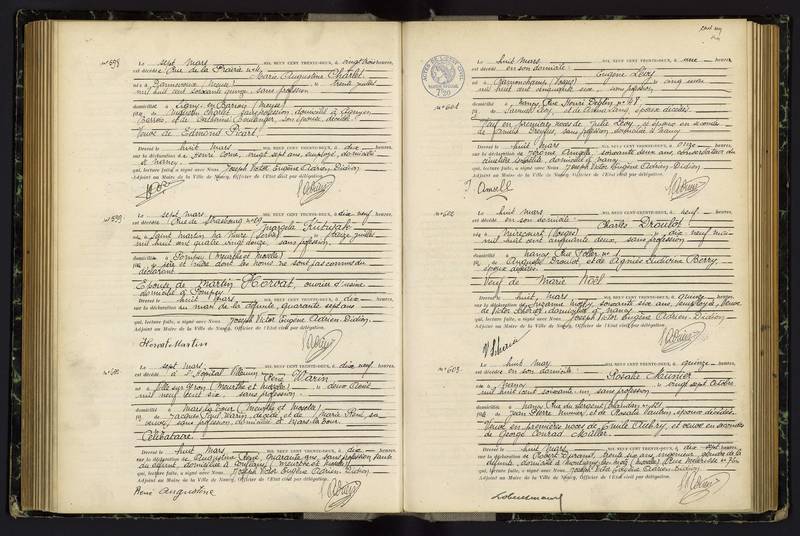 N° 598
Le sept mars MIL NEUF CENT TRENTE-DEUX, à vingt trois heures,
est décédée Rue de la Prairie n° 4,
Marie Augustine Charlet
née à (Meuse) le trente juillet
mil huit cent soixante quinze, sans profession
domiciliée à Ligny en Barrois (Meuse)
fille de Charlet, sans profession, domicilié à Ligny en
Barrois, et de Boulanger, son épouse, décédée
Veuve de Edmond Picart
Dressé le huit mars MIL NEUF CENT TRENTE-DEUX, à dix heures,
sur la déclaration de vingt sept ans, employé, domicilié
à Nancy,
qui, lecture faite, a signé avec Nous, Joseph Victor Eugène Adrien Didion,
Adjoint au Maire de la Ville de Nancy, Officier de l'Etat civil par délégation.
N° 599
Le sept mars MIL NEUF CENT TRENTE-DEUX, à dix neuf heures,
est décédée Rue de Strasbourg n° 29
Margela
née à Saint Martin le treize juillet
mil huit cent quatre vingt douze, sans profession
domiciliée à Pompey (Meurthe et Moselle)
fille de père et mère dont les noms ne sont pas connus du
déclarant
Epouse de Martin Horvat, ouvrier d'usine
domicilié à Pompey
Dressé le huit mars MIL NEUF CENT TRENTE-DEUX, à dix heures,
sur la déclaration du mari de la défunte, quarante sept ans
qui, lecture faite, a signé avec Nous, Joseph Victor Eugène Adrien Didion,
Adjoint au Maire de la Ville de Nancy, Officier de l'Etat civil par délégation.
Horvat Martin
N° 600
Le sept mars MIL NEUF CENT TRENTE-DEUX, à dix neuf heures,
est décédé à l'Hôpital Villemin
René Warin
né à Ville sur Yron (Meurthe et Moselle) le deux Août
mil neuf cent six, sans profession
domicilié à Mars la Tour (Meurthe et Moselle)
fils de Jacques Warin, décédé et de Marie René, sa
veuve, sans profession, domiciliée à Mars la Tour.
Célibataire
Dressé le huit mars MIL NEUF CENT TRENTE-DEUX, à dix heures,
sur la déclaration de Augustine René, quarante ans, sans profession, tante
du défunt, domiciliée à Conflans (Meurthe et Moselle)
qui, lecture faite, a signé avec Nous, Joseph Victor Eugène Adrien Didion,
Adjoint au Maire de la Ville de Nancy, Officier de l'Etat civil par délégation.
René Augustine
N° 601
Le huit mars MIL NEUF CENT TRENTE-DEUX, à une heure,
est décédé en son domicile
Eugène Lévy
né à (Vosges) le cinq
mil huit cent cinquante six, sans profession
domicilié à Nancy, Rue Henri Déglin n° 48
fils de Samuel Lévy, et de époux décédés
Veuf en premières noces de Julie Lévy, et époux en secondes
de Dreyfus, sans profession, domiciliée à Nancy
Dressé le huit mars MIL NEUF CENT TRENTE-DEUX, à onze heures,
sur la déclaration de soixante deux ans, conservateur du
cimetière israélite, domicilié à Nancy
qui, lecture faite, a signé avec Nous, Joseph Victor Eugène Adrien Didion,
Adjoint au Maire de la Ville de Nancy, Officier de l'Etat civil par délégation.
N° 602
Le huit mars MIL NEUF CENT TRENTE-DEUX, à neuf heures,
est décédé en son domicile
Charles Drouot
né à Mirecourt (Vosges) le dix neuf mai
mil huit cent cinquante deux, sans profession
domicilié à Nancy, Rue
fils de Auguste Drouot, et de Agnès Ludivine
époux décédés
Veuf de Marie Noël
Dressé le huit mars MIL NEUF CENT TRENTE-DEUX, à quinze heures,
sur la déclaration de Suzanne soixante six ans, employée, veuve
de Victor domiciliée à Nancy
qui, lecture faite, a signé avec Nous, Joseph Victor Eugène Adrien Didion,
Adjoint au Maire de la Ville de Nancy, Officier de l'Etat civil par délégation.
N° 603
Le huit mars MIL NEUF CENT TRENTE-DEUX, à quinze heures,
est décédée en son domicile
Rosalie Meusnier
née à Nancy le vingt sept octobre
mil huit cent soixante un, sans profession
domiciliée à Nancy, Rue du Sergent Blandan n°
fille de Jean Pierre et de Rosalie époux décédés
Veuve en premières noces de Emile Aubry, et veuve en secondes
de George Conrad Müller
Dressé le huit mars MIL NEUF CENT TRENTE-DEUX, à dix sept heures,
sur la déclaration de Robert trente six ans, ingénieur, gendre de la
défunte, domicilié à Montigny-lès-Metz (Moselle)
qui, lecture faite, a signé avec Nous, Joseph Victor Eugène Adrien Didion,
Adjoint au Maire de la Ville de Nancy, Officier de l'Etat civil par délégation.